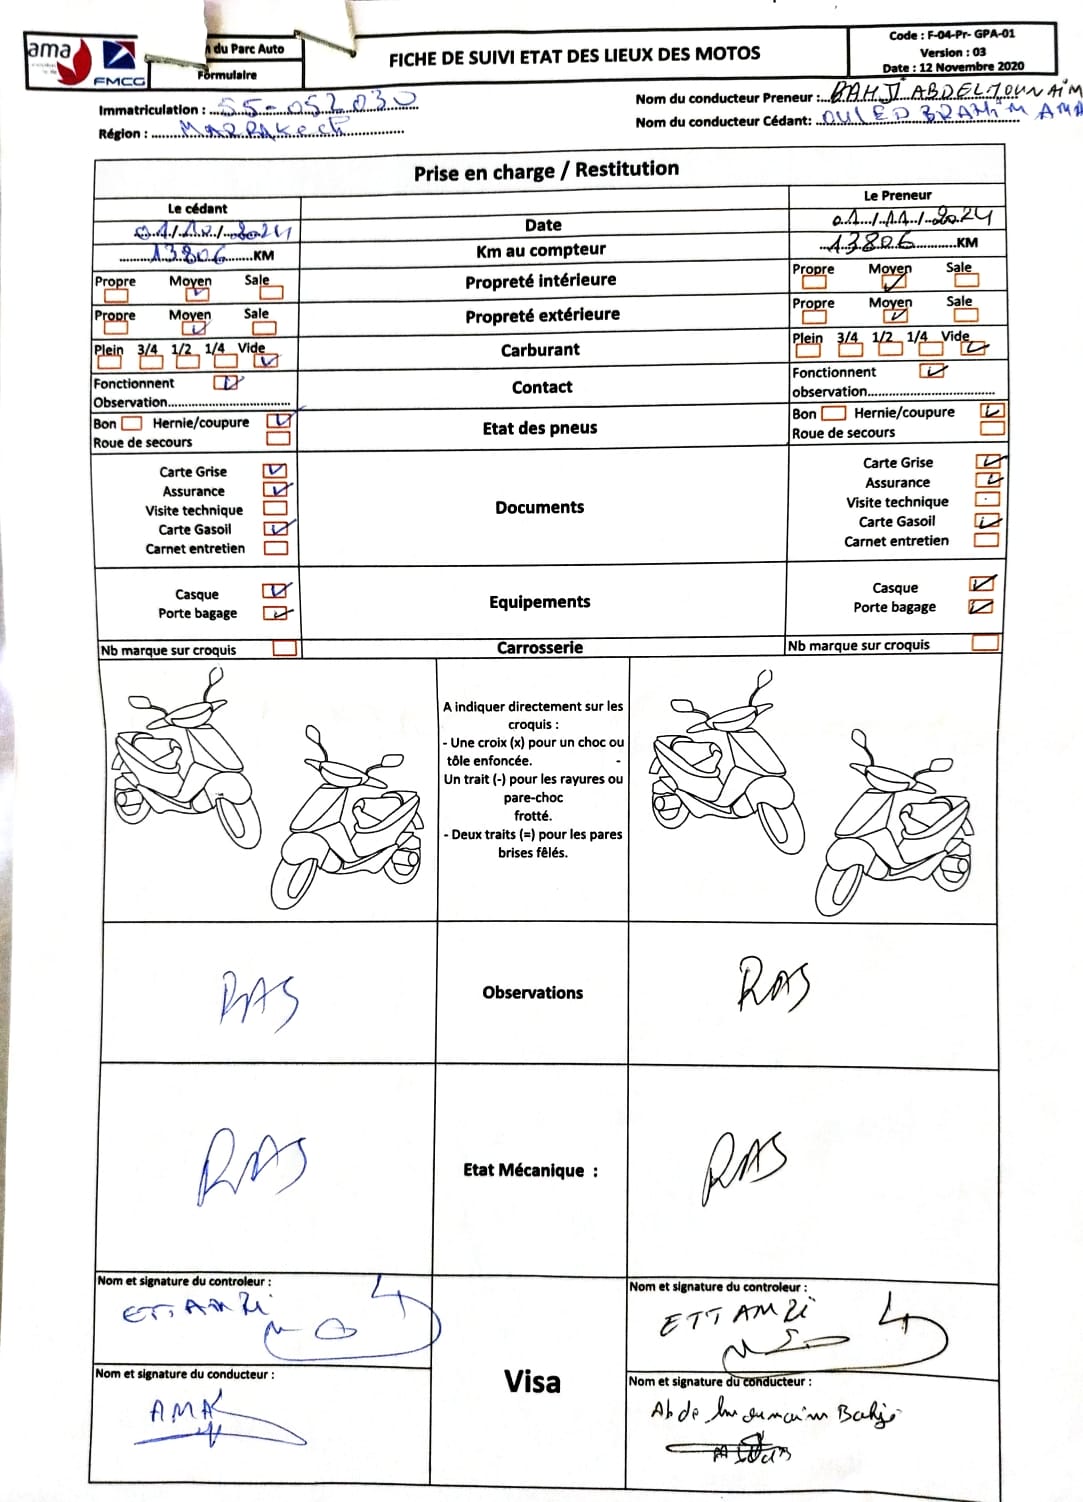 ama
FMCG
du Parc Auto
Formulaire
FICHE DE SUIVI ETAT DES LIEUX DES MOTOS
Code : F-04-Pr- GPA-01
Version : 03
Date : 12 Novembre 2020
Immatriculation : 55-052030
Région : MARRAKech
Nom du conducteur Preneur : BAHJI ABDELMOUNAIM
Nom du conducteur Cédant: OULED BRAHIM AMA
Prise en charge / Restitution
Le cédant
Le Preneur
01/10/2024
Date
01/11/2024
13806 KM
Km au compteur
13806 KM
Propre Moyen Sale
Propreté intérieure
Propre Moyen Sale
Propre Moyen Sale
Propreté extérieure
Propre Moyen Sale
Plein 3/4 1/2 1/4 Vide
Carburant
Plein 3/4 1/2 1/4 Vide
Fonctionnent
Observation
Contact
Fonctionnent
observation
Bon Hernie/coupure
Roue de secours
Etat des pneus
Bon Hernie/coupure
Roue de secours
Carte Grise
Assurance
Visite technique
Carte Gasoil
Carnet entretien
Documents
Carte Grise
Assurance
Visite technique
Carte Gasoil
Carnet entretien
Casque
Porte bagage
Equipements
Casque
Porte bagage
Nb marque sur croquis
Carrosserie
Nb marque sur croquis
A indiquer directement sur les
croquis :
- Une croix (x) pour un choc ou
tôle enfoncée. -
Un trait (-) pour les rayures ou
pare-choc
frotté.
- Deux traits (=) pour les pares
brises fêlés.
RAS
Observations
RAS
RAS
Etat Mécanique :
RAS
Nom et signature du controleur :
ETTAMRi
Nom et signature du conducteur :
AMA
Visa
Nom et signature du controleur :
ETTAMRi
Nom et signature du conducteur :
Abdelmounaim Bahji